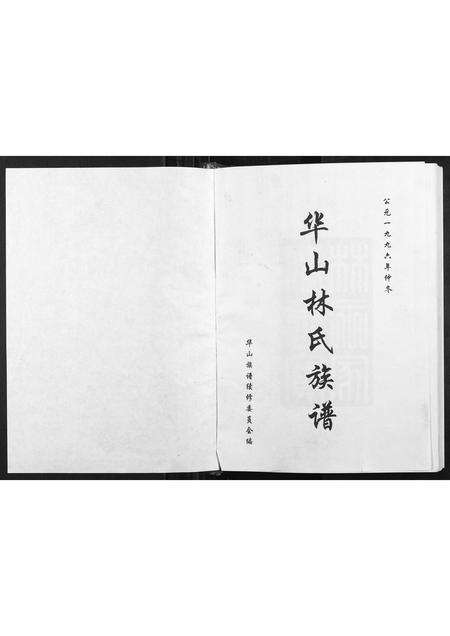 公元一九九六年仲冬
华山林氏族谱
华山族谱续修委员会编